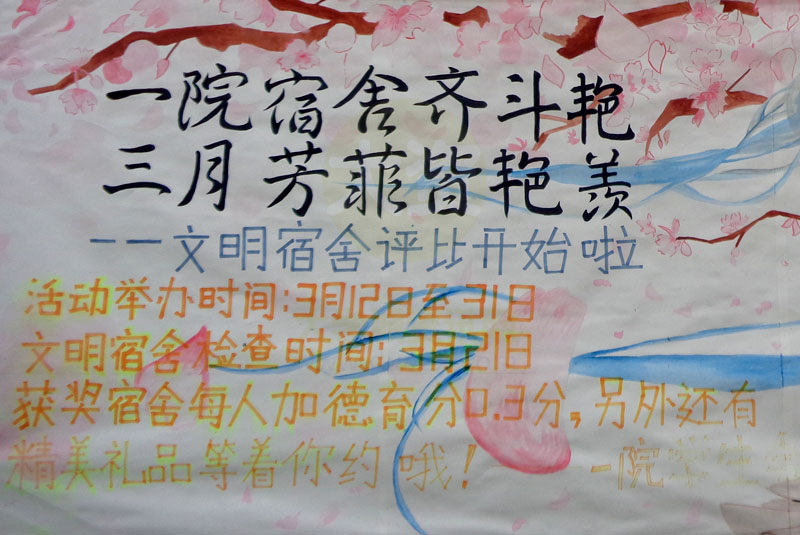 一院宿舍齐斗艳
三月芳菲皆艳羡
——文明宿舍评比开始啦
活动举办时间:3月12日至31日
文明宿舍检查时间:3月21日
获奖宿舍每人加德育分0.3分,另外还有
精美礼品等着你约哦!——一院学生